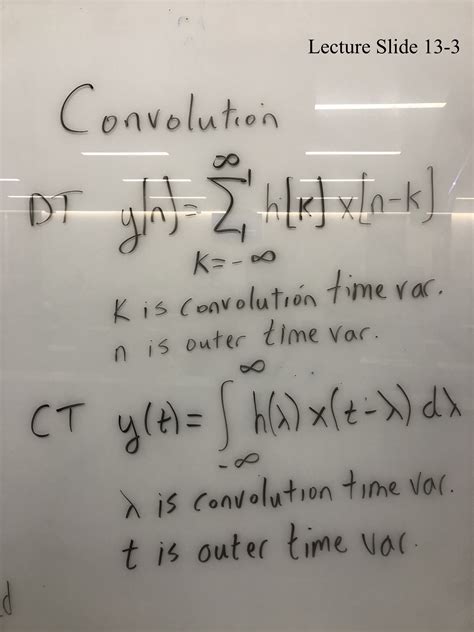 Lecture Slide 13-3
Convolution
DT y[n] = ∑ h[k] x[n-k]
∞
k=-∞
k is convolution time var.
n is outer time var.
∞
CT y(t) = ∫ h(λ) x(t-λ) dλ
-∞
λ is convolution time var.
t is outer time var.
d